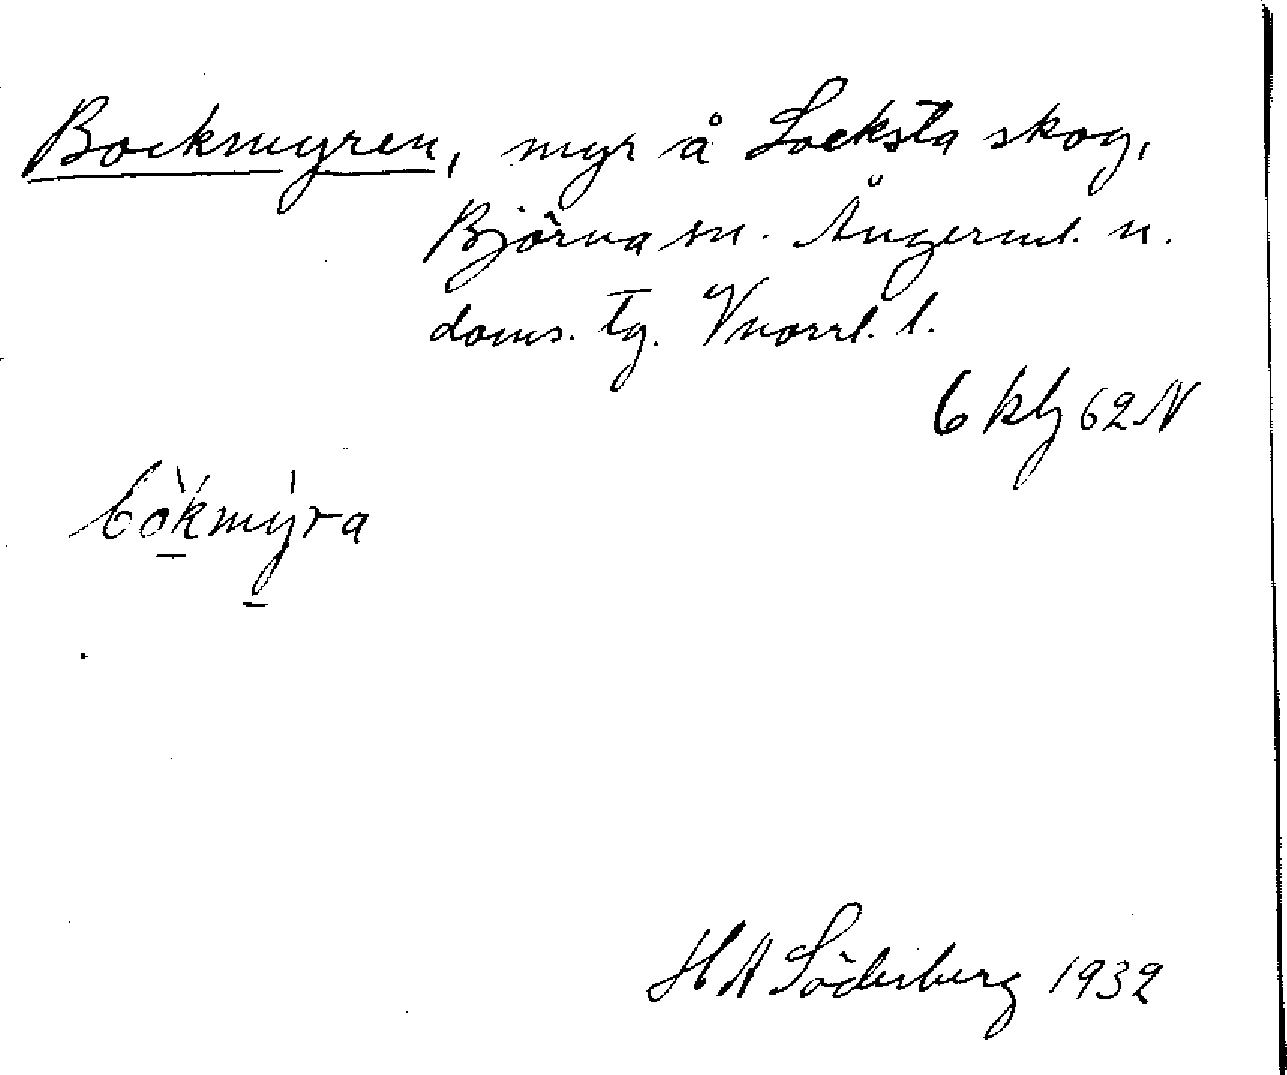 Bockmyren, myr å Locksta skog,
Björna sn. Ångerml. n.
doms. tg. Vnorrl. l.
6 klg 62 N
bòkmýra
H A Söderberg 1932